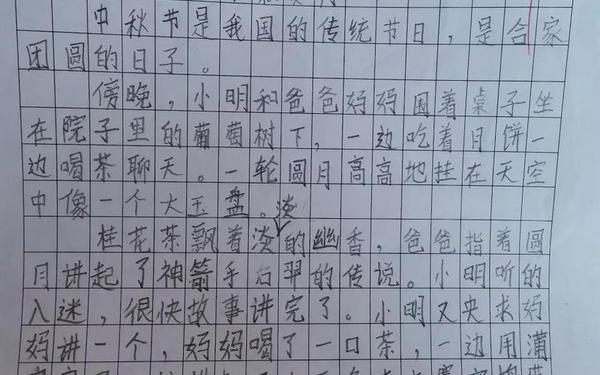 中秋节是我国的传统节日，是合家
团圆的日子。
傍晚，小明和爸爸妈妈围着桌子坐
在院子里的葡萄树下，一边吃着月饼一
边喝茶聊天。一轮圆月高高地挂在天空
中像一个大玉盘。
桂花茶飘着淡淡的幽香，爸爸指着圆
月讲起了神箭手后羿的传说。小明听的
入迷，很快故事讲完了。小明又央求妈
妈讲一个，妈妈喝了一口茶，一边用蒲